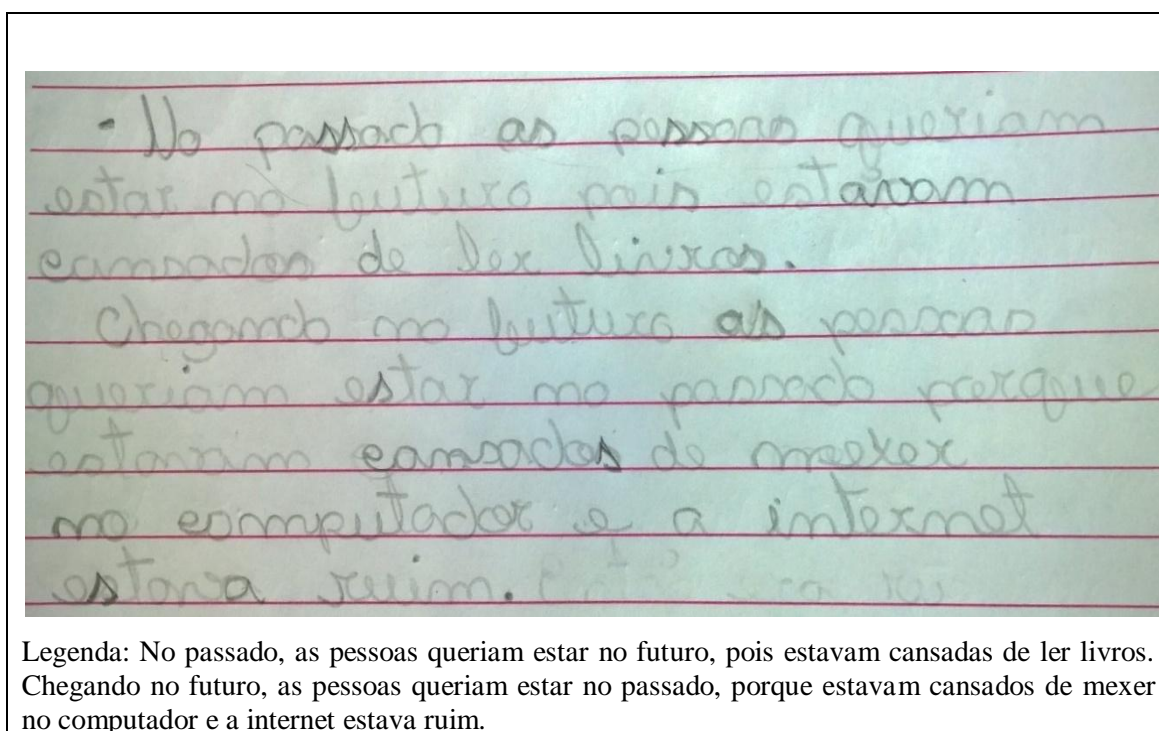 - No passado as pessoas queriam
estar no futuro pois estavam
cansados de ler livros.
Chegando no futuro as pessoas
queriam estar no passado porque
estavam cansados de mexer
no computador e a internet
estava ruim.
Legenda: No passado, as pessoas queriam estar no futuro, pois estavam cansadas de ler livros.
Chegando no futuro, as pessoas queriam estar no passado, porque estavam cansados de mexer
no computador e a internet estava ruim.